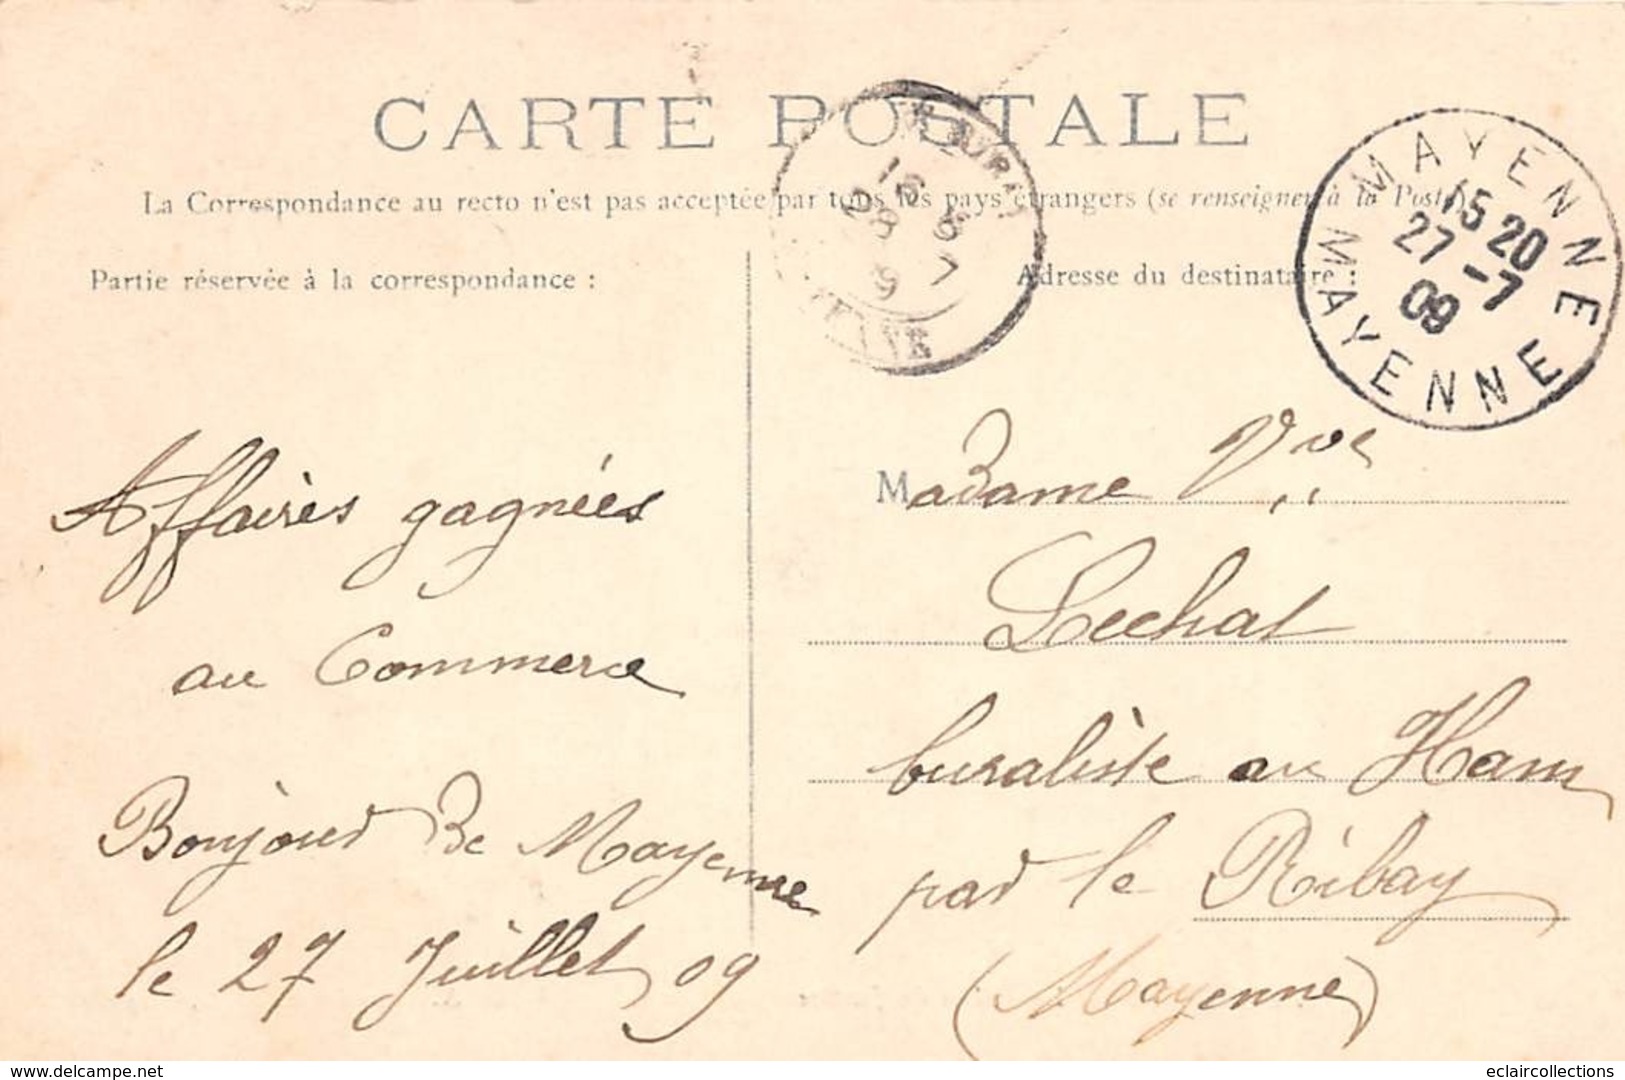 CARTE POSTALE
La Correspondance au recto n'est pas acceptée par tous les pays étrangers (se renseigner à la Poste)
Partie réservée à la correspondance :
Adresse du destinataire :
MAYENNE
15 20
27 -7
09
MAYENNE
16
28 7
9
Affaires gagnées
au Commerce
Bonjour de Mayenne
le 27 Juillet 09
Madame Vve
Lechat
buraliste au Ham
par le Ribay
(Mayenne)
eclaircollections